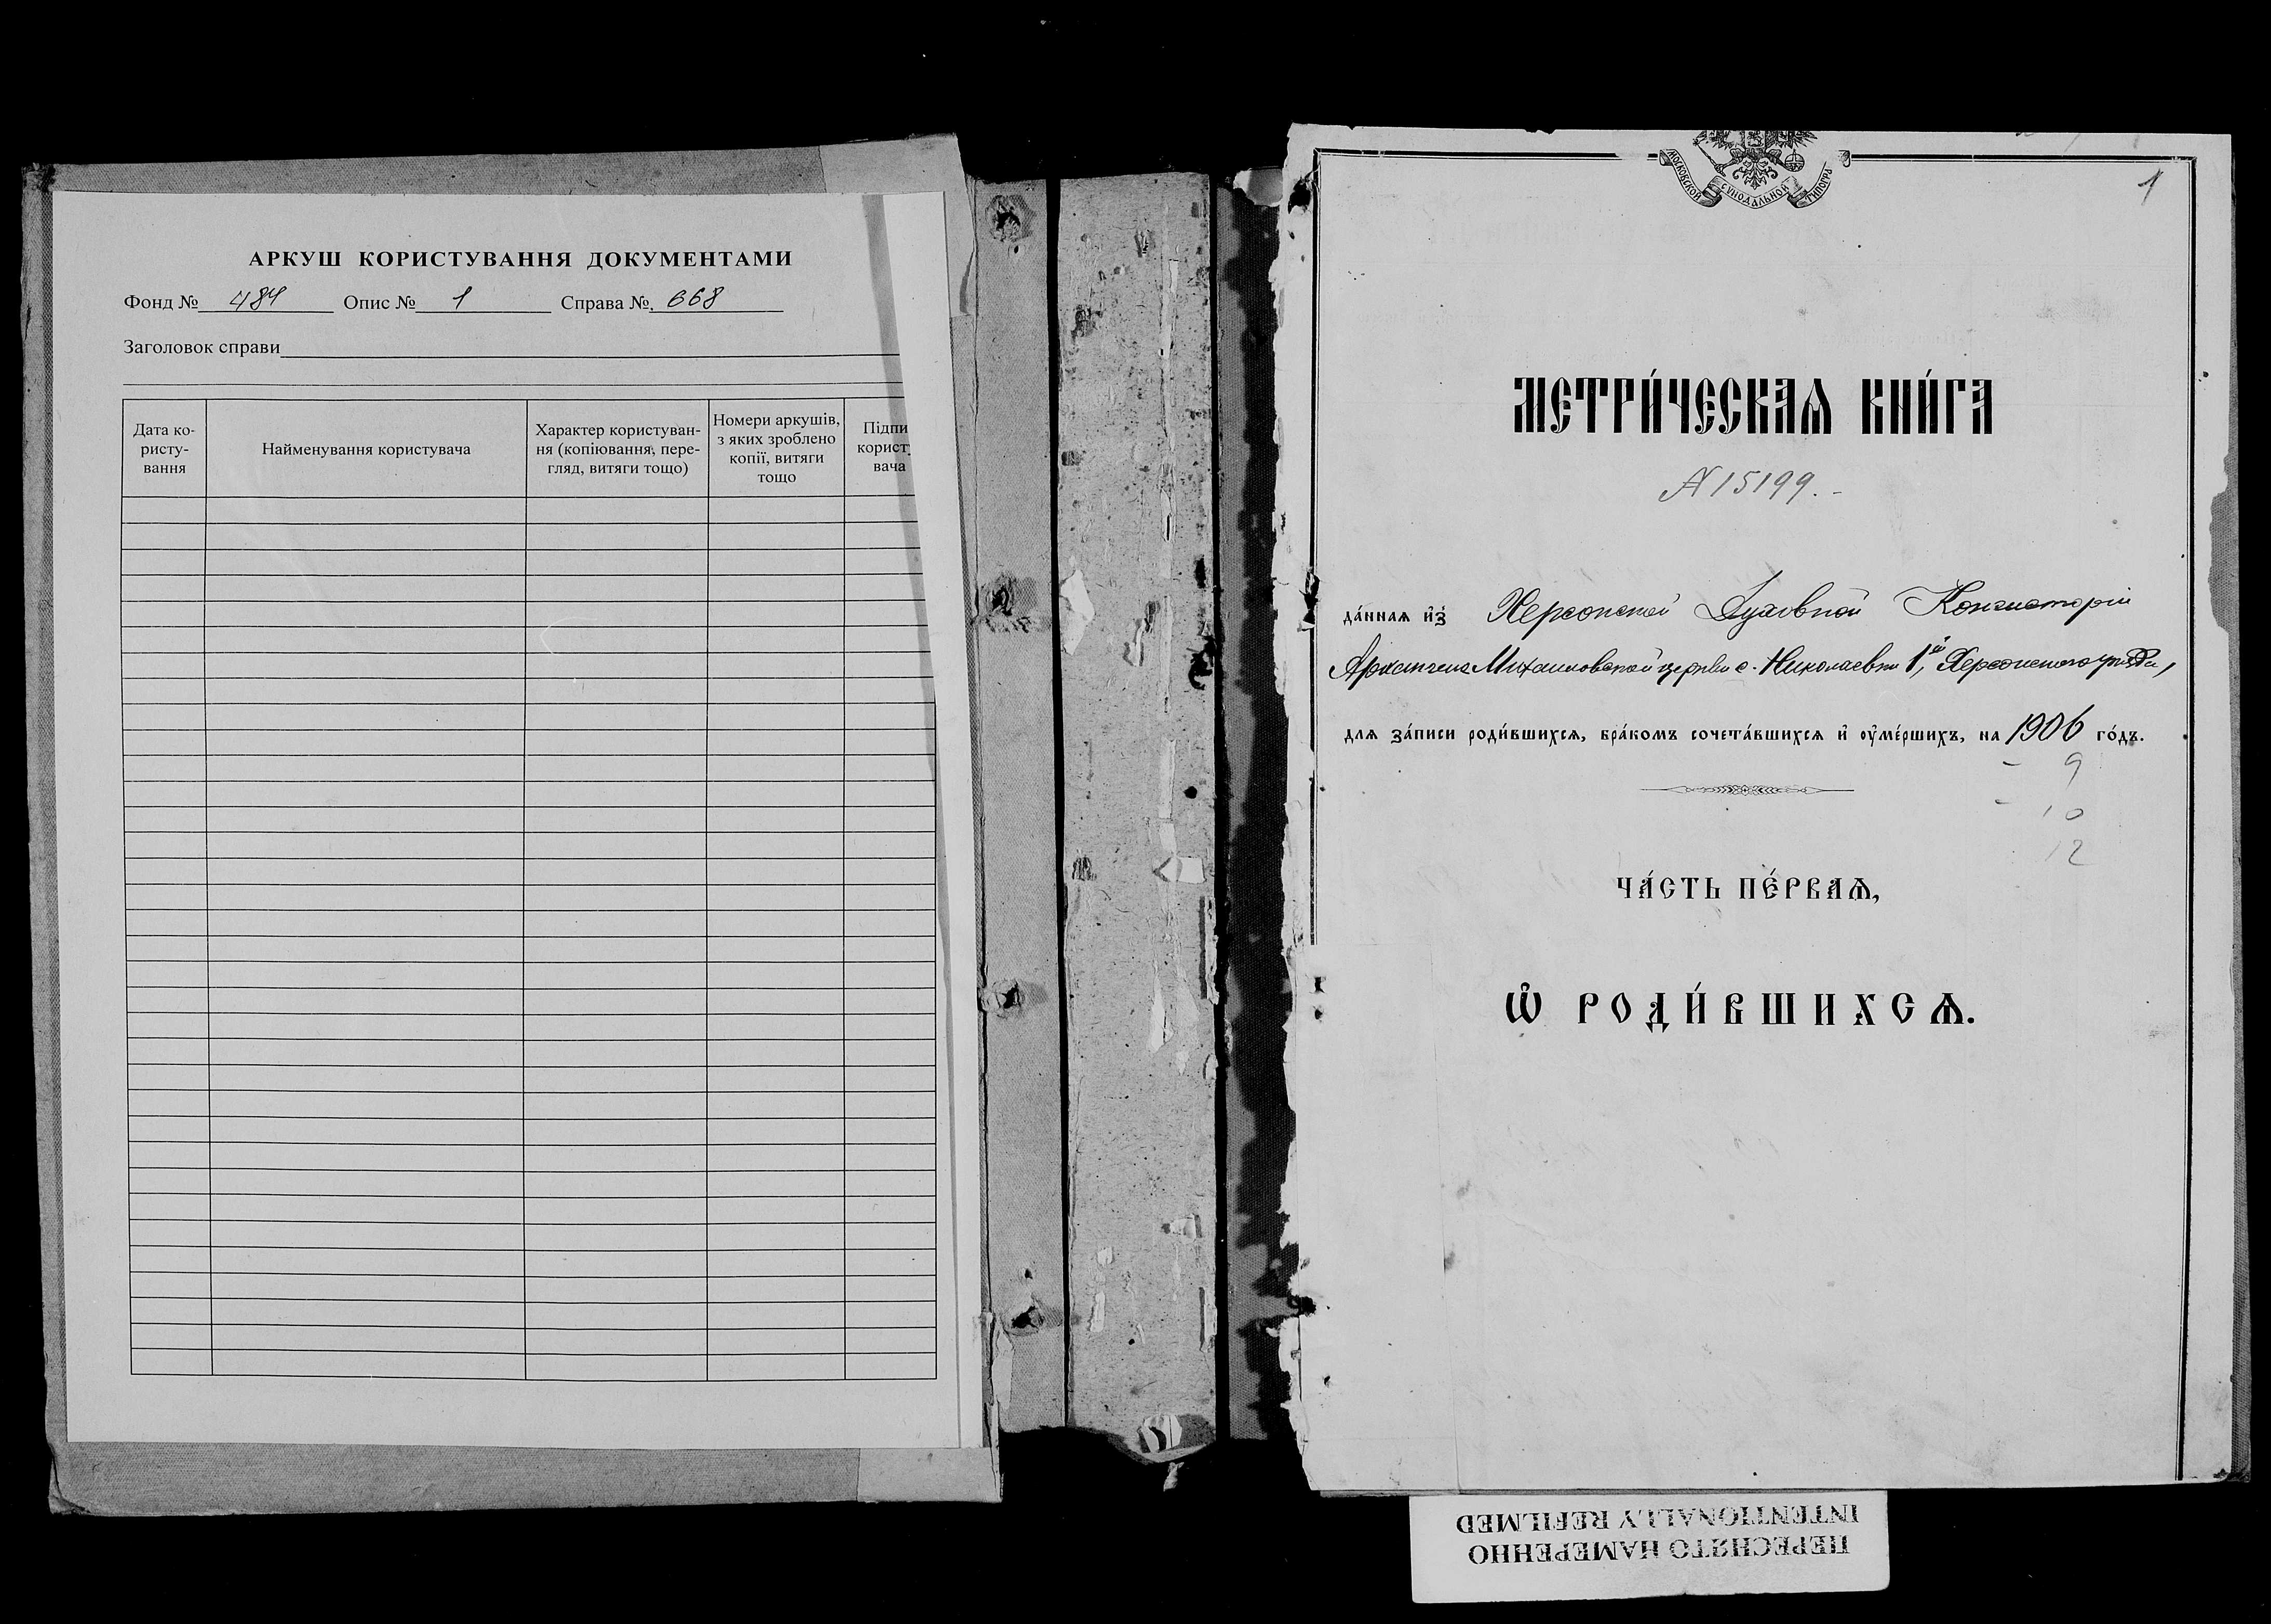 АРКУШ КОРИСТУВАННЯ ДОКУМЕНТАМИ
Фонд № 484 Опис № 1 Справа №. 668
Заголовок справи
Дата ко-
ристу-
вання
Найменування користувача
Характер користуван-
ня (копіювання, пере-
гляд, витяги тощо)
Номери аркушів,
з яких зроблено
копії, витяги
тощо
Підпи
корист
вача
МОСКОВСКОЙ СѴНОДАЛЬНОЙ ТИПОГРА
1
МЕТРИ́ЧЕСКАѦ КНИ́ГА
№ 15199.
да́ннаѧ и҆з̾ Херсонской Духовной Консисторіи
Архангело Михаиловской церкви с. Николаевки 1й, Херсонского уѣзда,
длѧ за́писи роди́вшихсѧ, бра́комъ сочета́вшихсѧ и҆ оу҆ме́ршихъ, на 1906 го́дъ.
9
10
12
ЧА́СТЬ ПЕ́РВАѦ,
Ѽ РОДИ́ВШИХСѦ.
ПЕРЕСНЯТО НАМЕРЕННО
INTENTIONALLY REFILMED